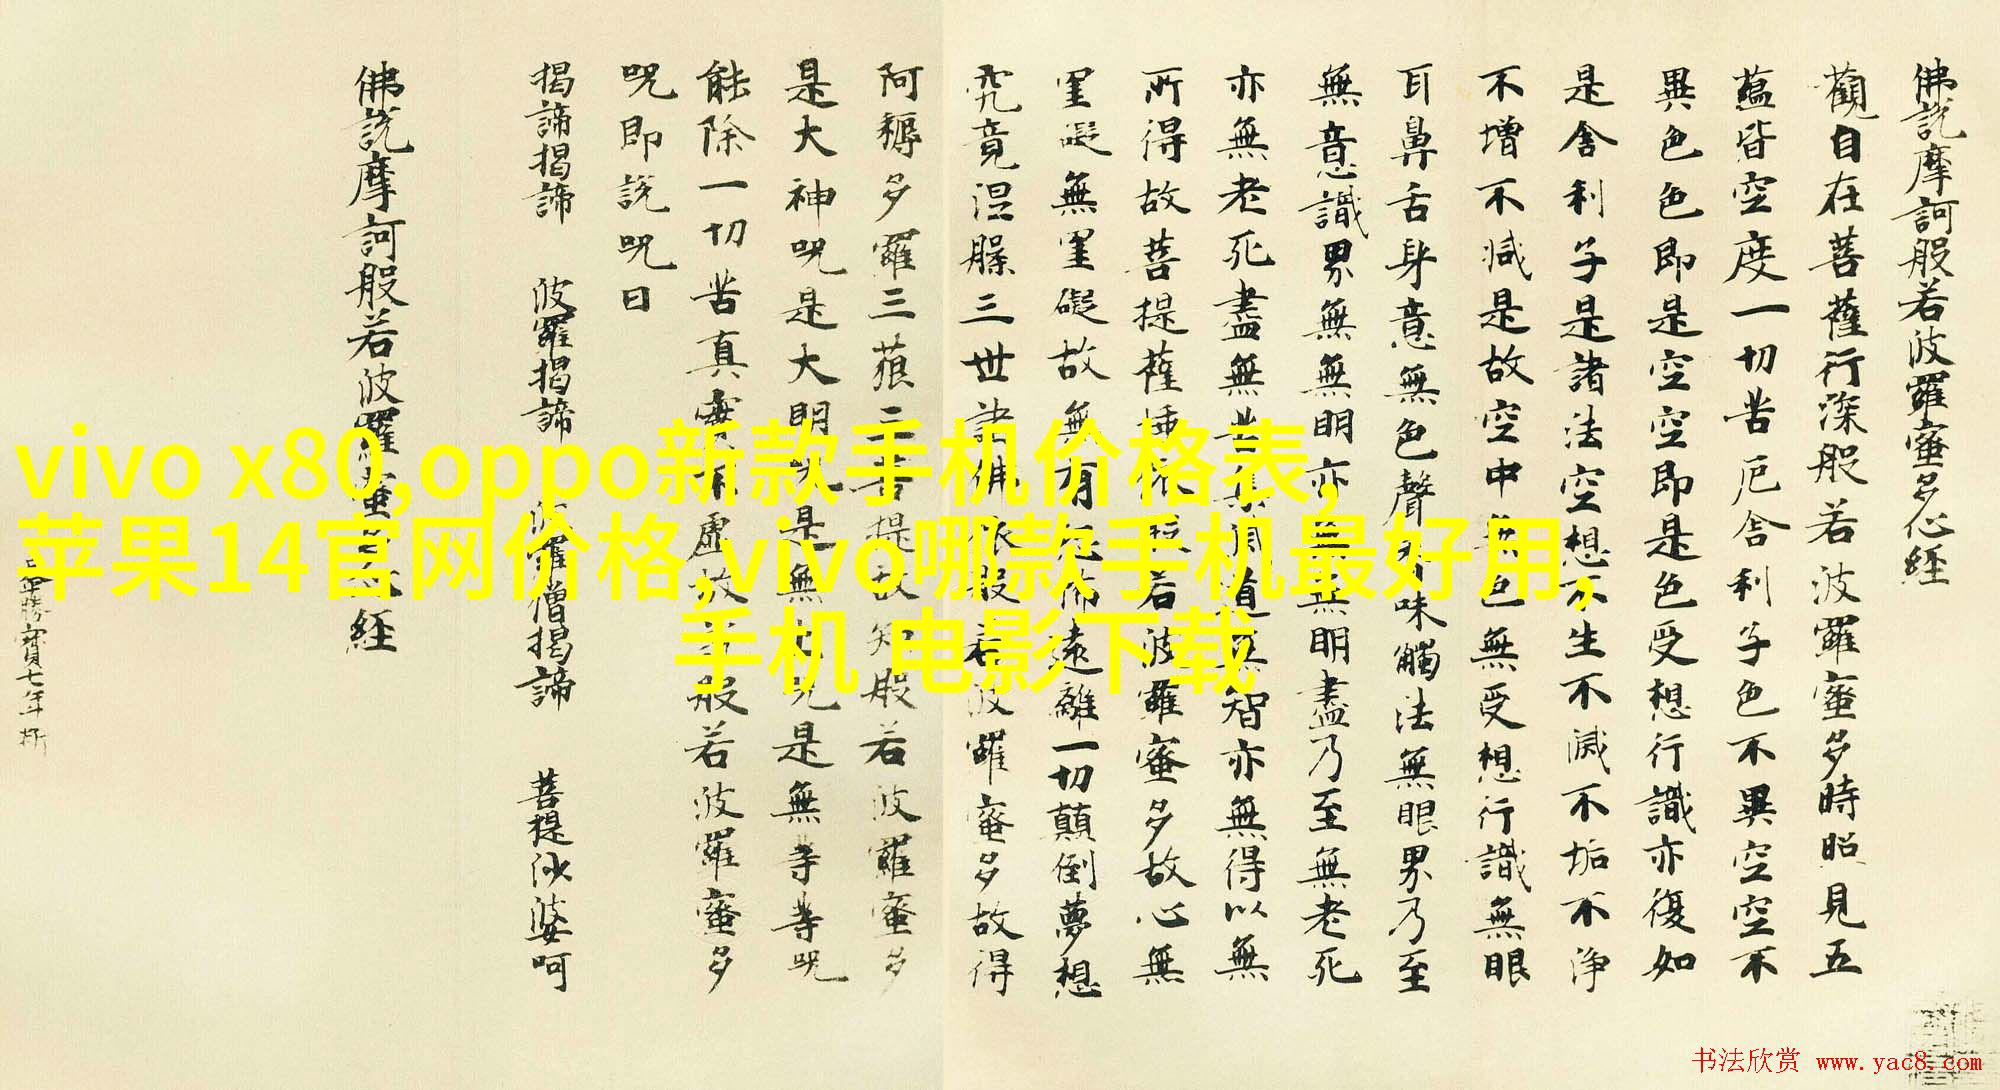 佛說摩訶般若波羅蜜多心経
觀自在菩薩行深般若波羅蜜多時照見五
蘊皆空度一切苦厄舎利子色不異空空不
異色色即是空空即是色受想行識亦復如
是舎利子是諸法空想不生不滅不垢不浄
不增不減是故空中無色無受想行識無眼
耳鼻舌身意無色聲香味觸法無眼界乃至
無意識界無無明亦無無明盡乃至無老死
亦無老死盡無苦集滅道無智亦無得以無
所得故菩提薩埵依般若波羅蜜多故心無
罣礙無罣礙故無有恐怖遠離一切顛倒夢想
究竟涅槃三世諸佛依般若波羅蜜多故得
阿耨多羅三藐三菩提故知般若波羅蜜多
是大神咒是大明咒是無上咒是無等等咒
能除一切苦真實不虛故說般若波羅蜜多
咒即説咒曰
揭諦揭諦 波羅揭諦 波羅僧揭諦 菩提沙婆呵
佛説摩訶般若波羅蜜多心経
寶七年
vivo x80,oppo新款手机价格表,
苹果14官网价格,vivo哪款手机最好用,
手机 电影下载
书法欣赏 www.yac8.com